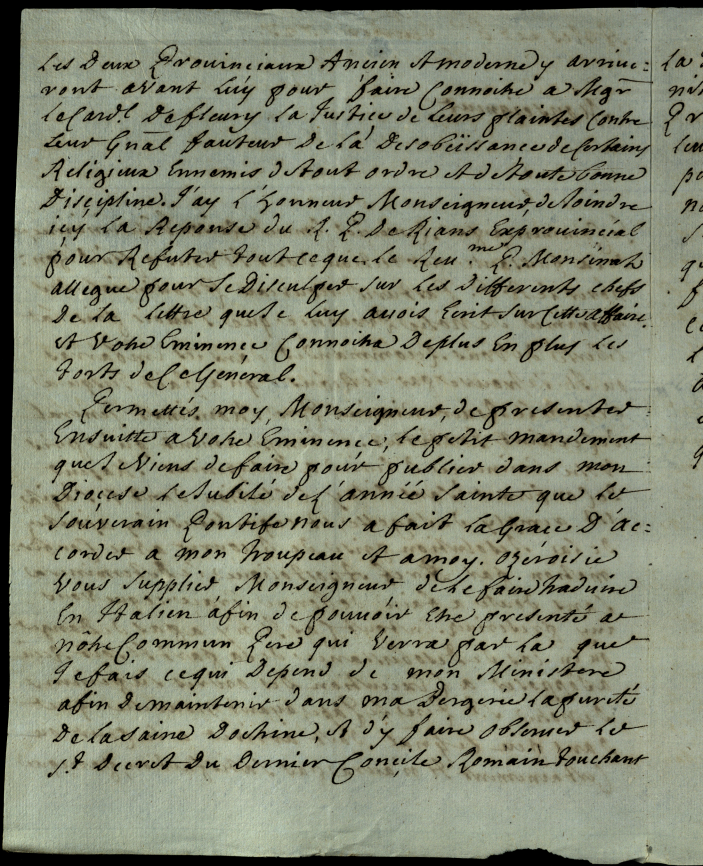 Les Deux Provinciaux Ancien et moderne y arrive=
ront avant luy pour faire Connoitre a Mgr
le Card.l De fleury la Justice de Leurs plaintes Contre
Leur Gnal fauteur De la Desobeissance de Certains
Religieux Ennemis de tout ordre et de toute bonne
Discipline. J'ay l'Honneur Monseigneur, de Joindre
icy La Reponse du R. P. De Rians Exprovincial
pour Refuter tout ce que le Reu.me P. Monsinati
allegue pour se Disculper sur les Differents chefs
De la lettre que Je Luy avois Ecrit sur Cette affaire,
et Votre Eminence Connoitra De plus En plus Les
torts de Ce General.
Permettés moy, Monseigneur, de presenter
Ensuitte a Votre Eminence, le petit mandement
que Je Viens de faire pour publier dans mon
Diocese le Jubilé de l'année Sainte que Le
Souverain Pontife nous a fait la Grace D'ac=
corder a mon troupeau et a moy. Ozerois je
Vous Supplier Monseigneur de le faire traduire
En Italien afin de pouvoir etre presenté a
nôtre Commun Pere qui Verra par La que
Je fais ce qui Depend de mon Ministere
afin De maintenir dans ma Bergerie la pureté
De la saine Doctrine, et d'y faire observer Le
St Decret Du Dernier Concile Romain touchant